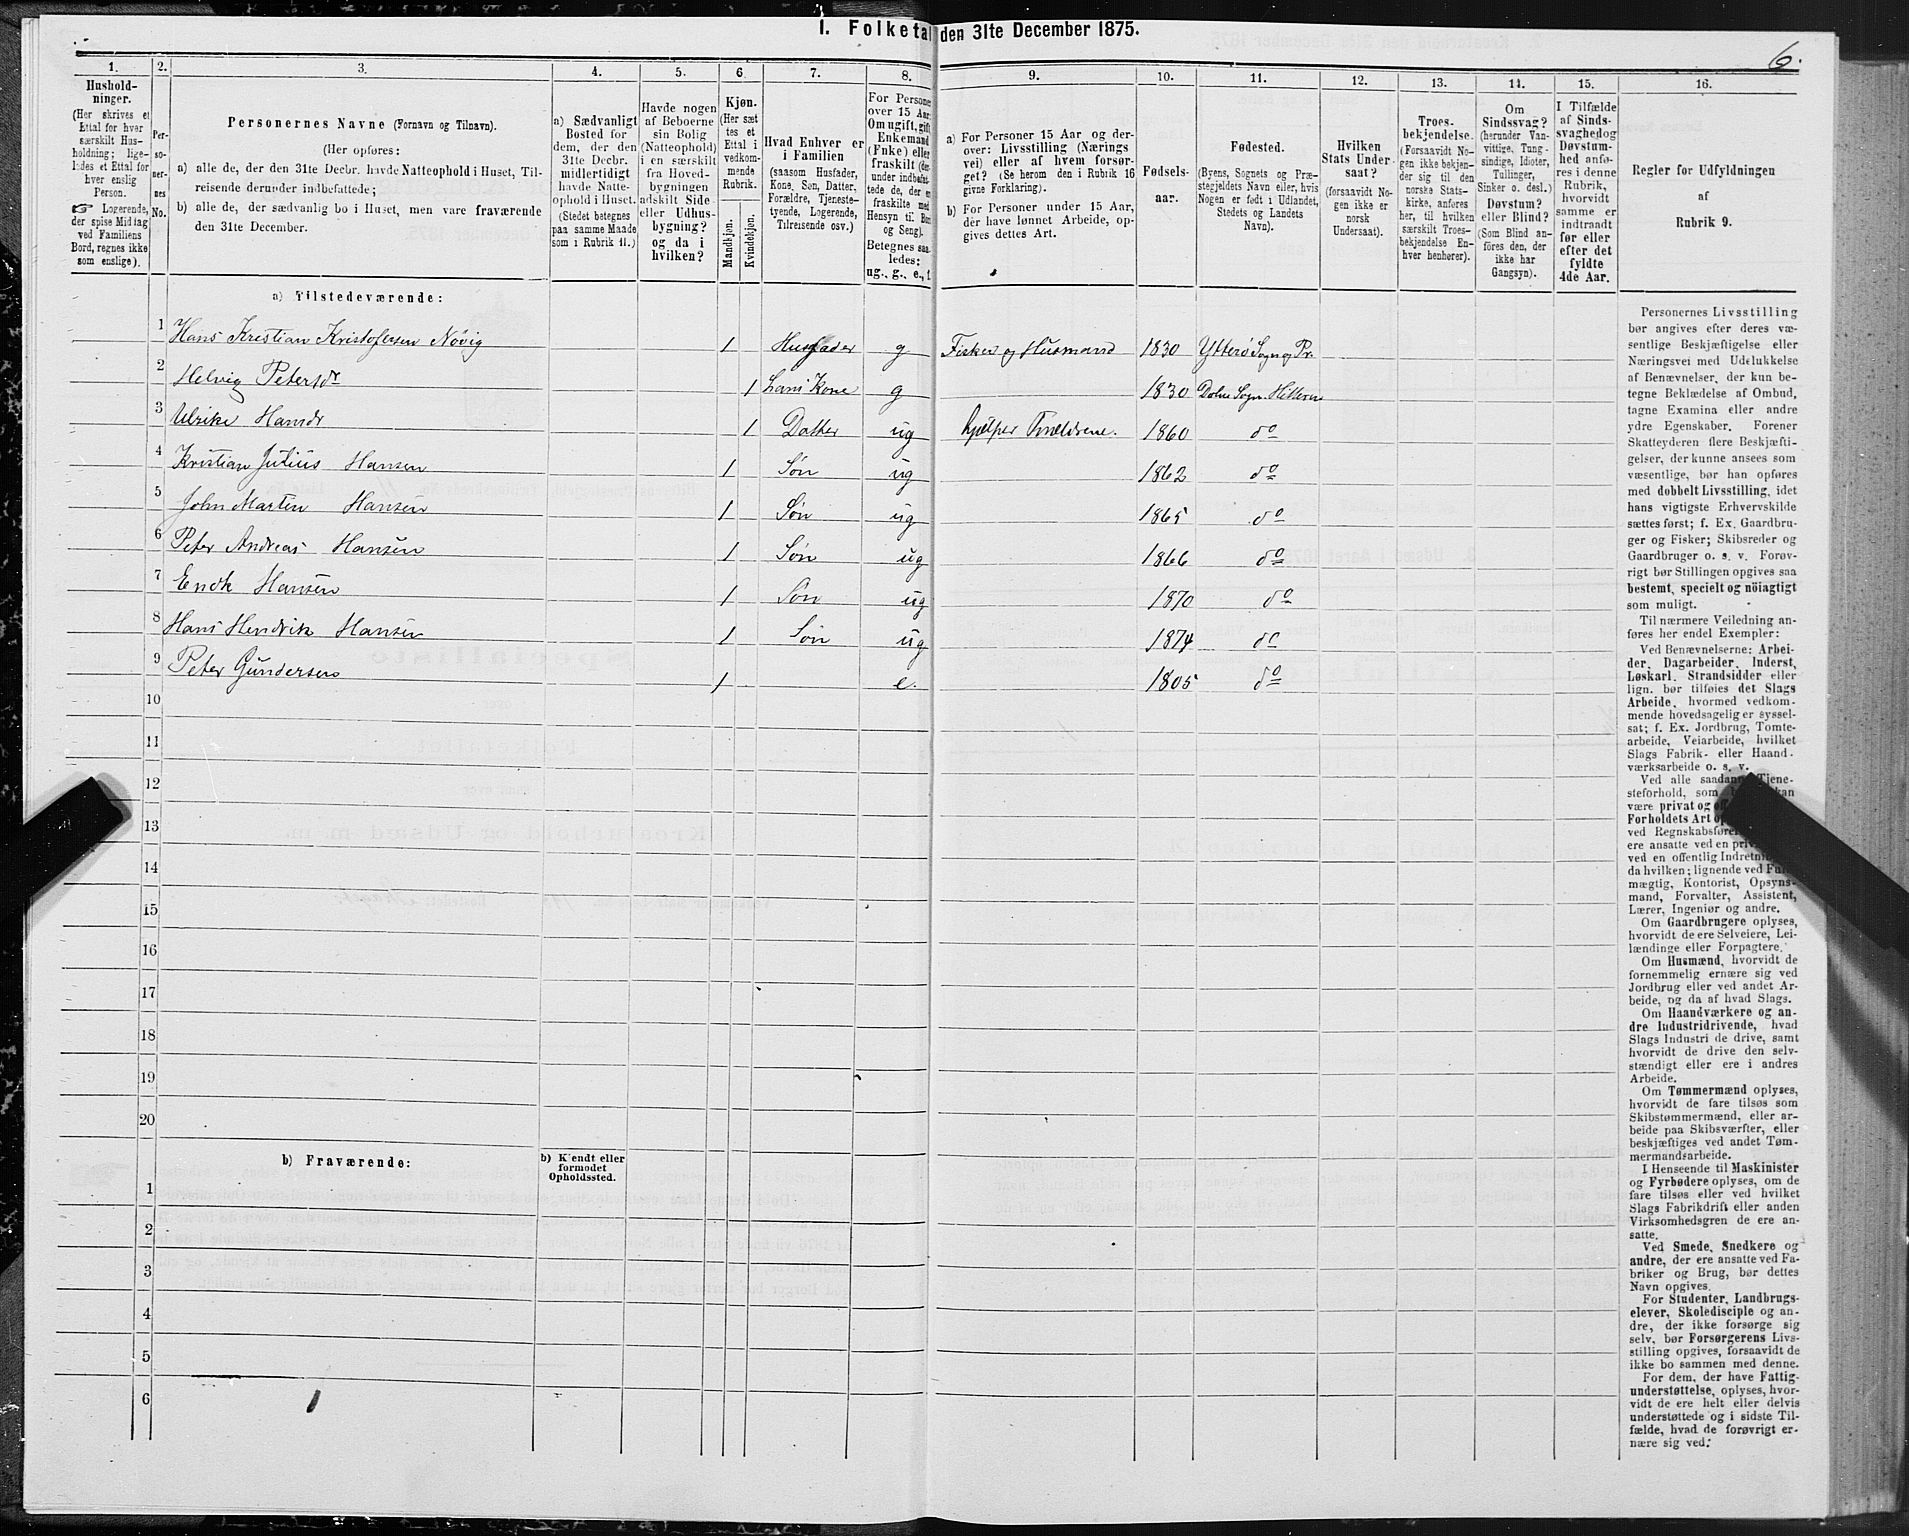 1. Folketal den 31te December 1875.
6.
1. 2. 3. 4. 5. 6. 7. 8. 9. 10. 11. 12. 13. 14. 15. 16.
Hushold-
ninger.
(Her skrives et
Ettal for hver
særskilt Hus-
holdning; lige-
ledes et Ettal for
hver enslig
Person.
☞ Logerende,
der spise Middag
ved Familiens
Bord, regnes ikke
som enslige).
Per-
so-
ner-
nes
No.
Personernes Navne (Fornavn og Tilnavn).
(Her opføres:
a) alle de, der den 31te Decbr. havde Natteophold i Huset, Til-
reisende derunder indbefattede;
b) alle de, der sædvanlig bo i Huset, men vare fraværende
den 31te December.
a) Sædvanligt
Bosted for
dem, der den
31te Decbr.
midlertidigt
havde Natte-
ophold i Huset.
(Stedet betegnes
paa samme Maade
som i Rubrik 11.)
Havde nogen
af Beboerne
sin Bolig
(Natteophold)
i en særskilt
fra Hoved-
bygningen
adskilt Side-
eller Udhus-
bygning?
og da i
hvilken?
Kjøn.
(Her sæt
tes et
Ettal i
vedkom-
mende
Rubrik.
Mandkjøn.
Kvindekjøn.
Hvad Enhver er
i Familien
(saasom Husfader,
Kone, Søn, Datter,
Forældre, Tjeneste-
tyende, Logerende,
Tilreisende osv.)
For Personer
over 15 Aar:
Om ugift, gift,
Enkemand
(Fnke) eller
fraskilt (der-
under indbefat-
tede de, der er
fraskilte med
Hensyn til Bord
og Seng).
Betegnes saa-
ledes:
ug., g., e., f.
a) For Personer 15 Aar og der-
over: Livsstilling (Nærings
vei) eller af hvem forsør-
get? (Se herom den i Rubrik 16
givne Forklaring).
b) For Personer under 15 Aar,
der have lønnet Arbeide, op-
gives dettes Art.
Fødsels-
aar.
Fødested.
(Byens, Sognets og Præ-
stegjeldets Navn eller, hvis
Nogen er født i Udlandet,
Stedets og Landets
Navn).
Hvilken
Stats Under-
saat?
(forsaavidt No-
gen ikke er
norsk
Undersaat).
Troes-
bekjendelse.
(Forsaavidt No-
gen ikke bekjen-
der sig til den
norske Stats-
kirke, anføres
her, til hvilken
særskilt Troes-
bekjendelse En-
hver henhører).
Om
Sindssvag?
(herunder Van-
vittige, Tung-
sindige, Idioter,
Tullinger,
Sinker o. desl.)
Døvstum?
eller Blind?
(Som Blind an-
føres den, der
ikke har
Gangsyn).
I Tilfælde
af Sinds-
svaghed og
Døvstum-
hed anfø-
res i denne
Rubrik,
hvorvidt
samme er
indtraadt
før eller
efter det
fyldte
4de Aar.
Regler for Udfyldningen
af
Rubrik 9.
a) Tilstedeværende:
1 Hans Kristian Kristofersen Növig 1 Husfader g Fisker og Husmand 1830 Ytterö Sogn og Pr
2 Helvig Petersdr 1 hans Kone g 1830 Dolm Sogn Hitteren
3 Ulrike Hansdr 1 Datter ug hjælper Forældrene. 1860 do
4 Kristian Julius Hansen 1 Søn ug 1862 do
5 John Marten Hansen 1 Søn ug 1865 do
6 Peter Andreas Hansen 1 Søn ug 1866 do
7 Hansen 1 Søn ug 1870 do
8 Hans Hendrik Hansen 1 Søn ug 1874 do
9 Peter Gundersen 1 e. 1805 do
10
11
12
13
14
15
16
17
18
19
20
b) Fraværende:
b) Kjendt eller
formodet
Opholdssted.
1
2
3
4
5
6
Personernes Livsstilling
bør angives efter deres væ-
sentlige Beskjæftigelse eller
Næringsvei med Udelukkelse
af Benævnelser, der kun be-
tegne Beklædelse af Ombud,
tagne Examina eller andre
ydre Egenskaber. Forener
Skatteyderen flere Beskjæfti-
gelser, der kunne ansees som
væsentlige, bør han opføres
med dobbelt Livsstilling, idet
hans vigtigste Erhvervskilde
sættes først; f. Ex. Gaardbru-
ger og Fisker; Skibsreder og
Gaardbruger o. s. v. Forøv-
rigt bør Stillingen opgives saa
bestemt, specielt og nöiagtigt
som muligt.
Til nærmere Veiledning an-
føres her endel Exempler:
Ved Benævnelserne: Arbei-
der, Dagarbeider, Inderst,
Løskarl, Strandsidder eller
lign. bør tilføies det Slags
Arbeide, hvormed vedkom-
mende hovedsagelig er syssel-
sat; f. Ex. Jordbrug, Tomte-
arbeide, Veiarbeide, hvilket
Slags Fabrik- eller Haand-
værksarbeide o. s. v.
Ved alle saadanne Tjene-
steforhold, som kan
være privat og
Forholdets Art
ved Regnskabsfører
ere ansatte ved en
ved en offentlig Indretning
da hvilken; lignende ved Fuld-
mægtig, Kontorist, Opsyns-
mand, Forvalter, Assistent,
Lærer, Ingeniør og andre.
Om Gaardbrugere oplyses,
hvorvidt de ere Selveiere, Lei-
lændinge eller Forpagtere.
Om Husmænd, hvorvidt de
fornemmelig ernære sig ved
Jordbrug eller ved andet Ar-
beide, og da af hvad Slags.
Om Haandværkere og an-
dre Industridrivende, hvad
Slags Industri de drive, samt
hvorvidt de drive den selv-
stændigt eller ere i andres
Arbeide.
Om Tømmermænd oplyses,
hvorvidt de fare tilsøs som
Skibstømmermænd, eller ar-
beide paa Skibsværfter, eller
beskjæftiges ved andet Tøm-
mermandsarbeide.
I Henseende til Maskinister
og Fyrbødere oplyses, om de
fare tilsøs eller ved hvilket
Slags Fabrikdrift eller anden
Virksomhedsgren de ere an-
satte.
Ved Smede, Snedkere og
andre, der ere ansatte ved Fa-
briker og Brug, bør dettes
Navn opgives.
For Studenter, Landbrugs-
elever, Skoledisciple og an-
dre, der ikke forsørge sig
selv, bør Forsørgerens Livs-
stilling opgives, forsaavidt de
ikke bo sammen med denne.
For dem, der have Fattig-
understøttelse, oplyses, hvor-
vidt de ere helt eller delvis
understøttede og i sidste Til-
fælde, hvad de forøvrigt er-
nære sig ved.